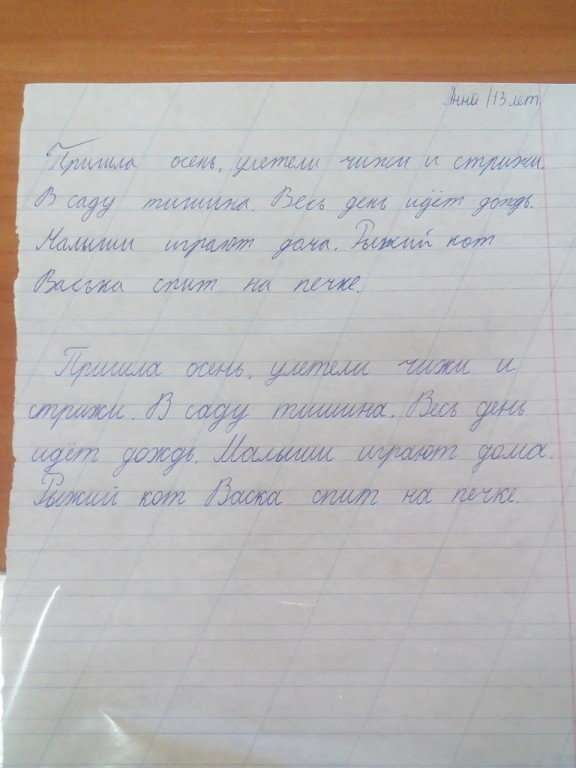 Анна /13 лет
Пришла осень, улетели чижи и стрижи.
В саду тишина. Весь день идёт дождь.
Малыши играют дома. Рыжий кот
Васька спит на печке.
Пришла осень, улетели чижи и
стрижи. В саду тишина. Весь день
идёт дождь. Малыши играют дома.
Рыжий кот Васка спит на печке.